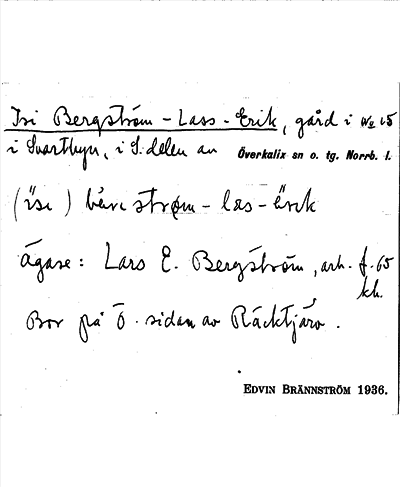 Isi Bergström - Lass - Erik, gård i No 15
i Svartbyn, i S. delen av Överkalix sn o. tg. Norrb. l.
(isi) bärström - las - erik
Ägare: Lars E. Bergström, arb. f. 65
kh.
Bor på Ö. sidan av Räcktjärv.
EDVIN BRÄNNSTRÖM 1936.